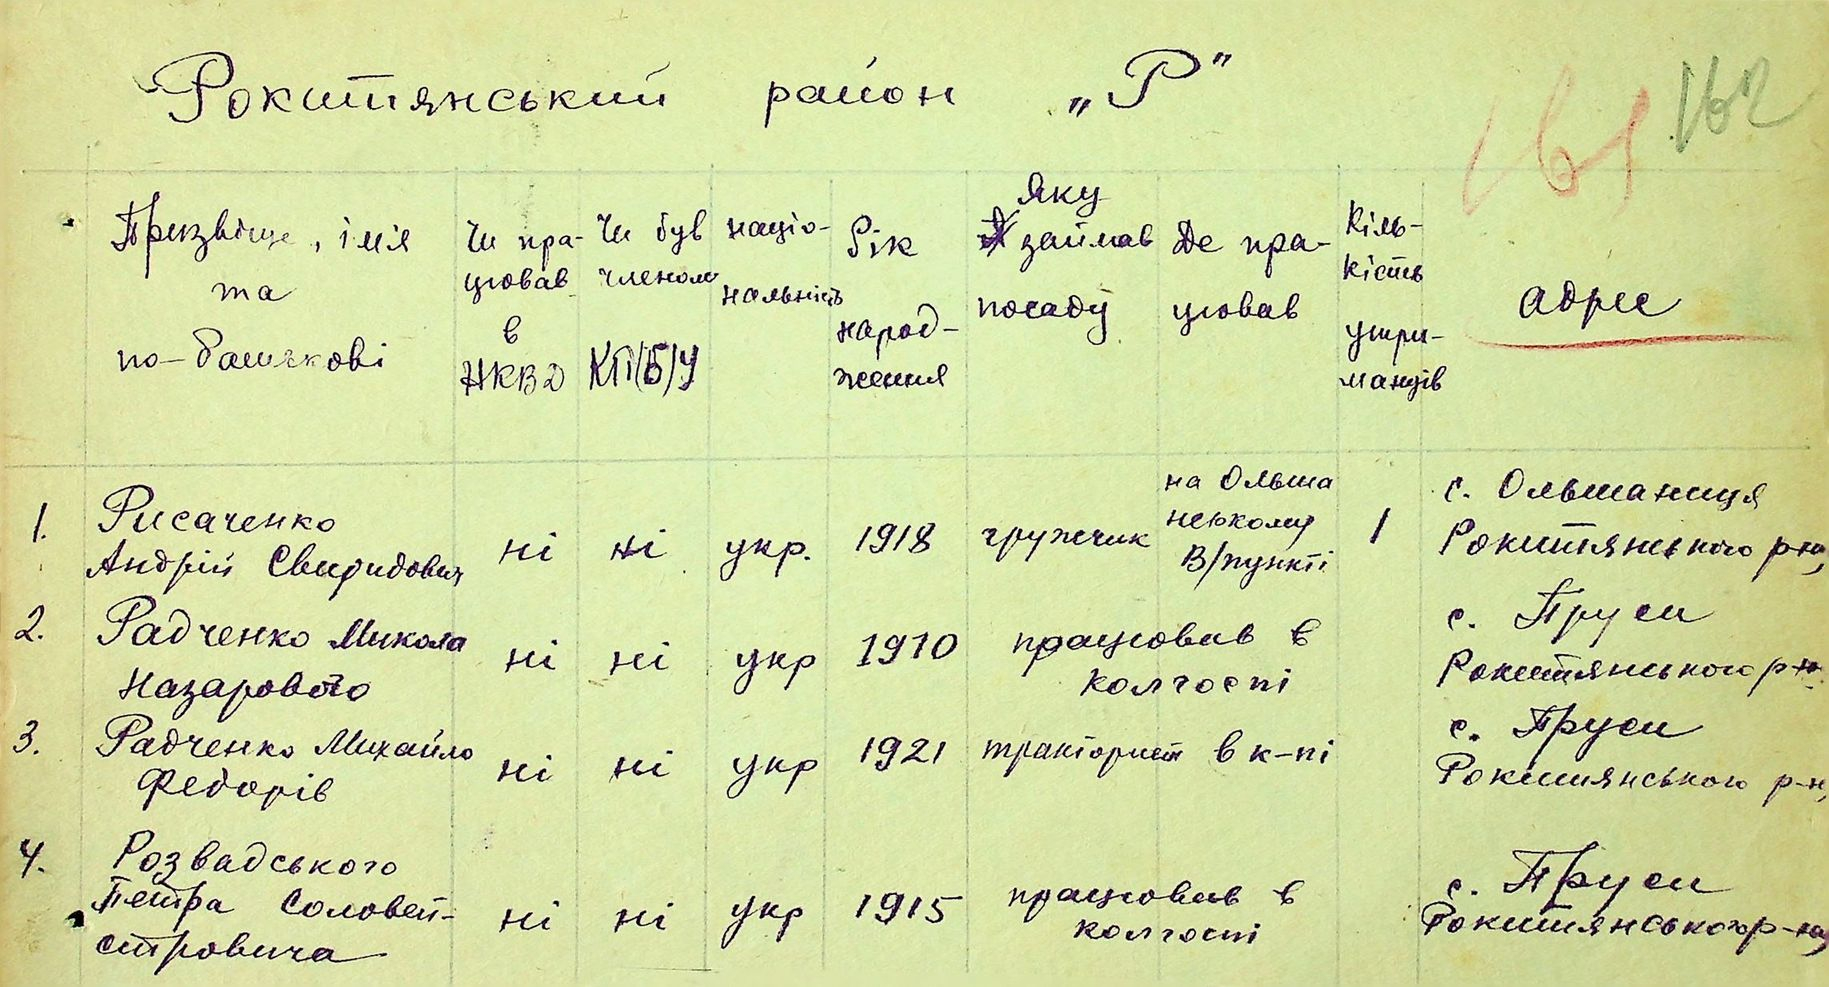 Рокитянський район „Р"
161 162
Призвіще, імія та по-батькові
Чи працював в НКВД
Чи був членом КП(б)У
націо-нальність
Рік народ-ження
Яку займав посаду
Де пра-цював
Кіль-кість утри-манців
адрес
1. Рисаченко Андрій Свиридович ні ні укр. 1918 гружчик на Ольша нському В/пункті 1 с. Ольшаниця Рокитянського р-ну,
2. Радченко Микола Назарового ні ні укр 1910 працював в колгоспі с. Пруси Рокитянського р-н
3. Радченко Михайло Федорів ні ні укр 1921 тракторист в к-пі с. Пруси Рокитянського р-н,
4. Розвадського Петра Соловей-стровича ні ні укр 1915 працював в колгоспі с. Пруси Рокитянського р-ну,